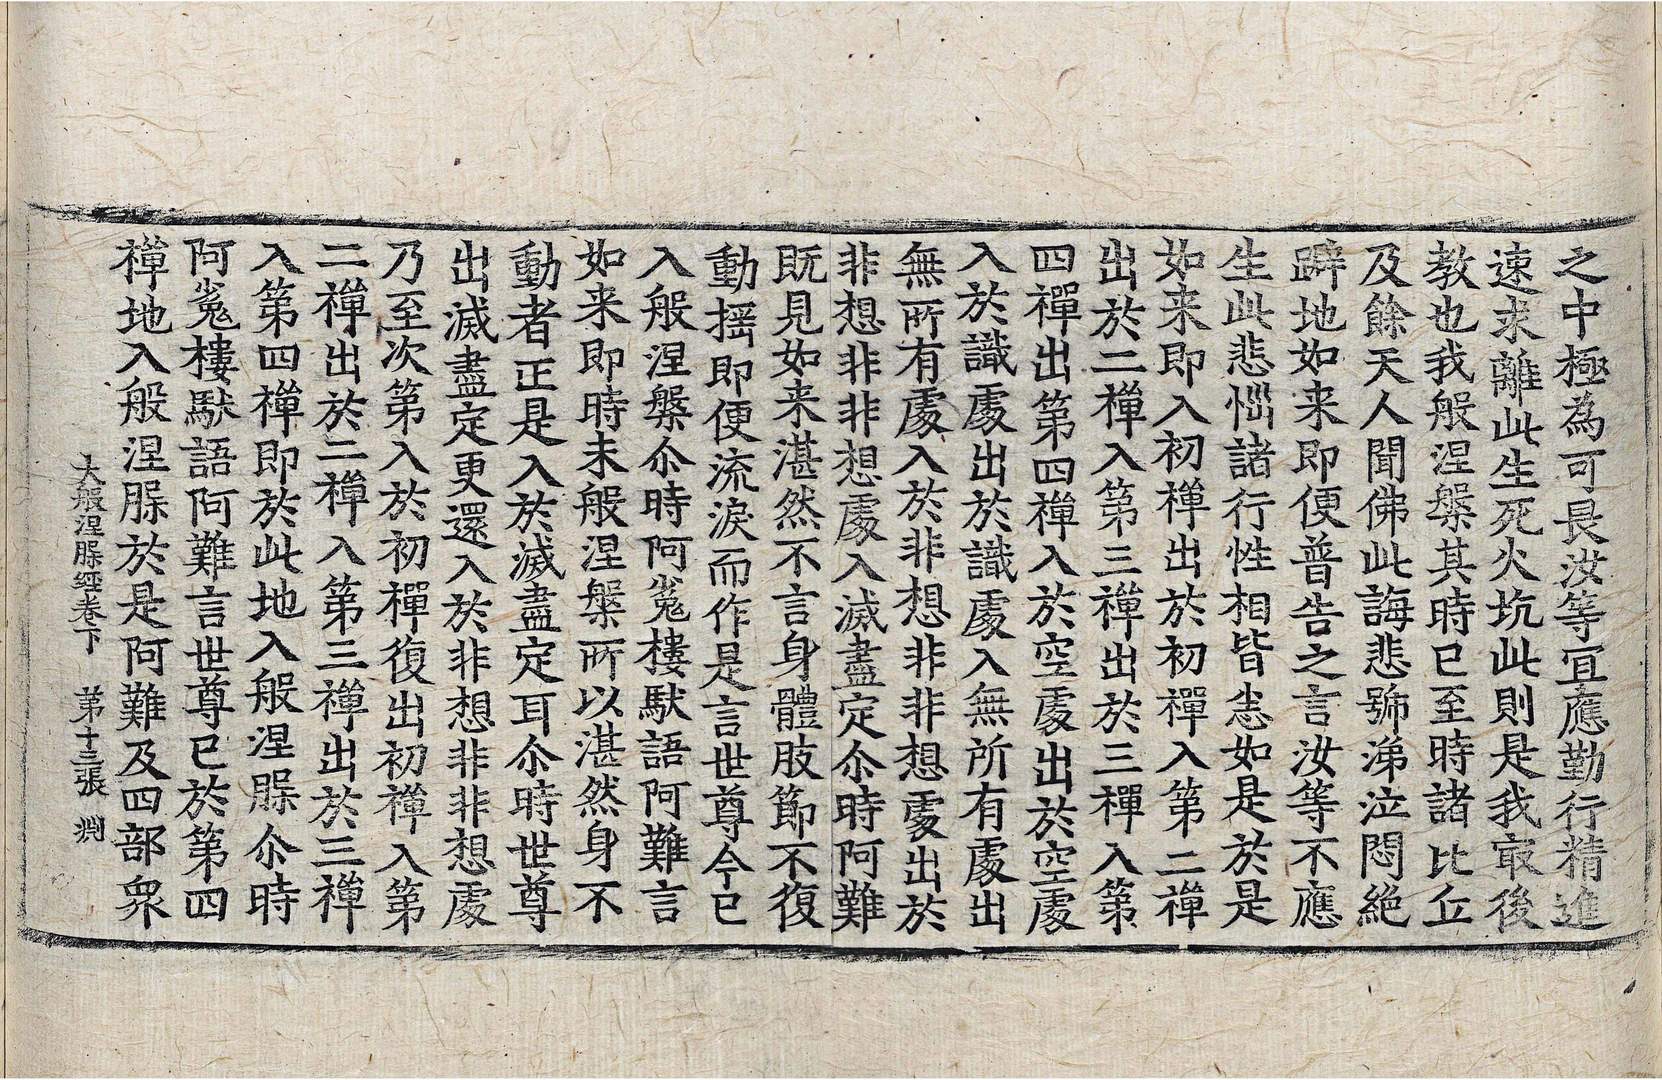 之中極為可畏汝等宜應勤行精進
速求離此生死火坑此則是我㝡後
教也我般涅槃其時已至時諸比丘
及餘天人聞佛此誨悲號涕泣悶絕
躃地如来即便普告之言汝等不應
生此悲惱諸行性相皆悉如是於是
如来即入初禪出於初禪入第二禪
出於二禪入第三禪出於三禪入第
四禪出第四禪入於空處出於空處
入於識處出於識處入無所有處出
無所有處入於非想非非想處出於
非想非非想處入滅盡定尒時阿難
既見如来湛然不言身體肢節不復
動揺即便流淚而作是言世尊今已
入般涅槃尒時阿㝹樓馱語阿難言
如来即時未般涅槃所以湛然身不
動者正是入於滅盡定耳尒時世尊
出滅盡定更還入於非想非非想處
乃至次第入於初禪復出初禪入第
二禪出於二禪入第三禪出於三禪
入第四禪即於此地入般涅槃尒時
阿㝹樓馱語阿難言世尊已於第四
禪地入般涅槃於是阿難及四部衆
大般涅槃経卷下 第十三張 淵